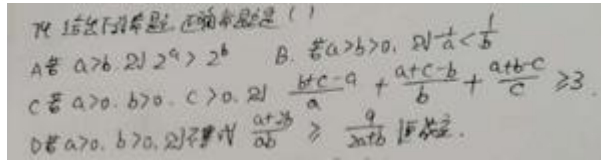 74 给出下列命题,正确命题是( )
A若 a>b 则 2^a > 2^b B. 若a>b>0, 则 1/a < 1/b
C若 a>0. b>0. C>0. 则 (b+c-a)/a + (a+c-b)/b + (a+b-c)/c ≥3.
D若a>0, b>0, 则不等式 (a+2b)/ab ≥ 9/(2a+b) 恒成立.